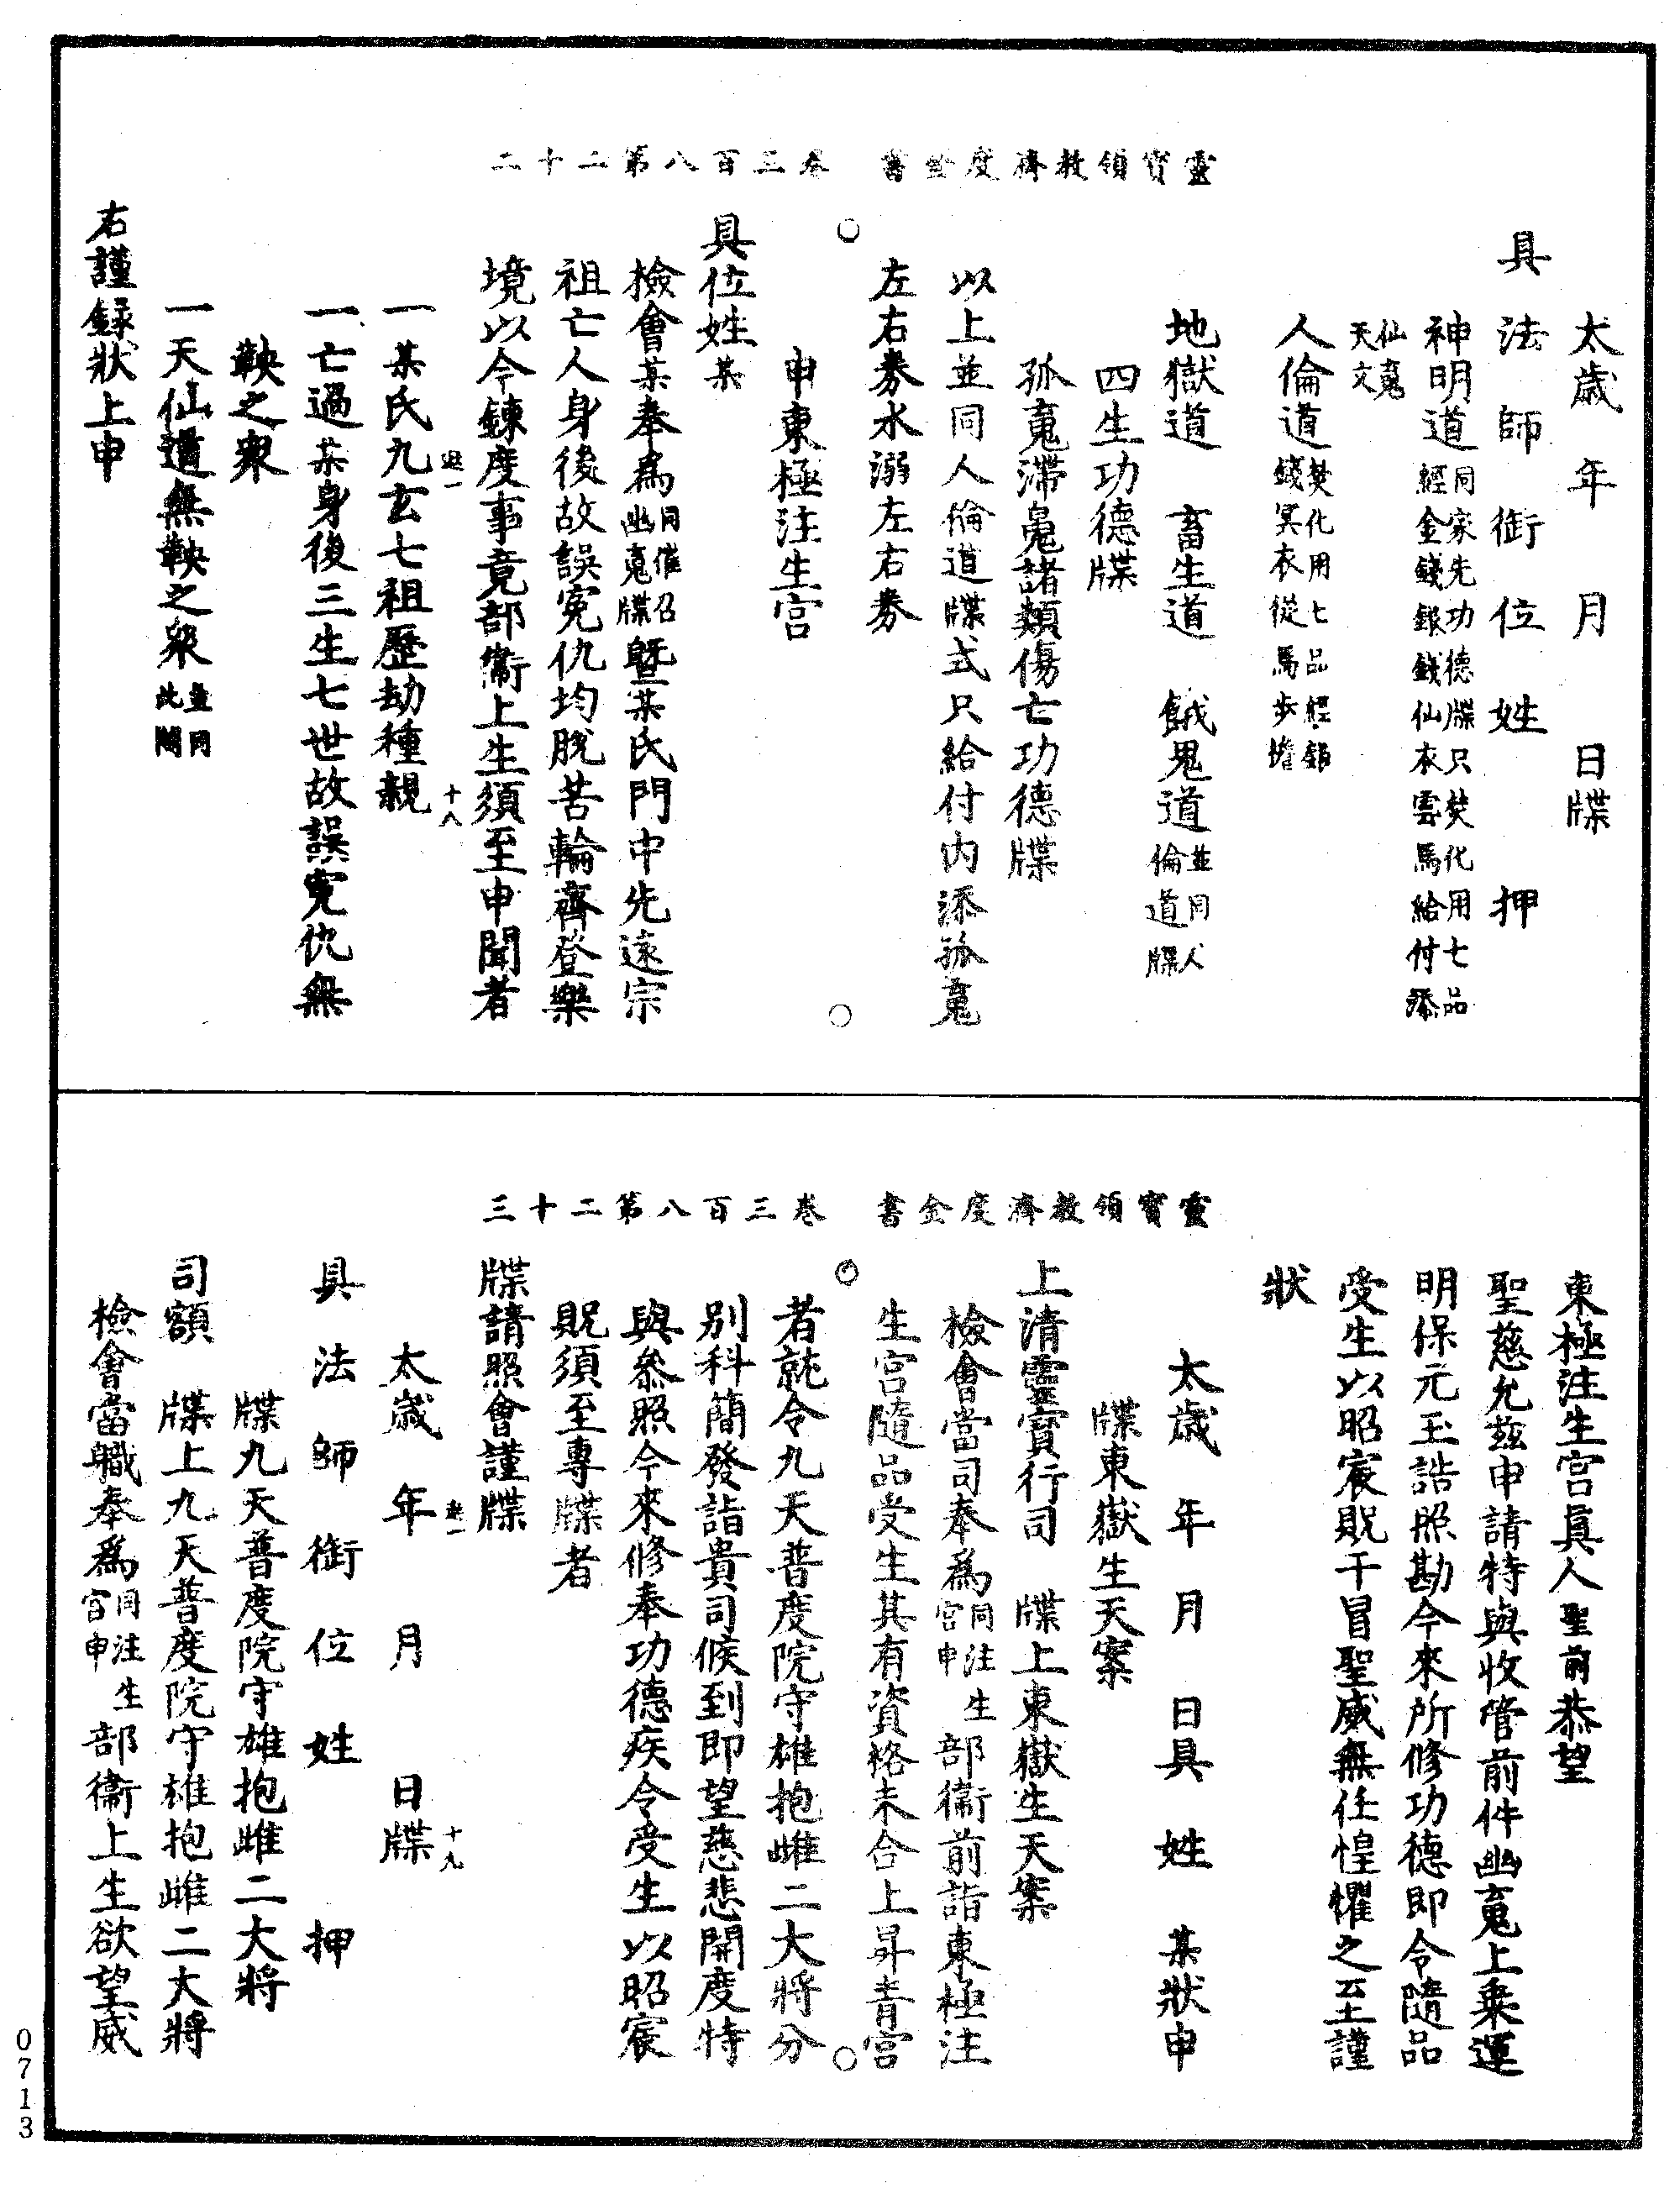 靈寶領教濟度金書　卷三百八第二十二
太歲　年　月　日牒
具法師銜位姓　押
神明道同家先功德牒只焚化用七品經金錢銀錢仙衣雲馬給付添
仙魂天文
人倫道焚化用七品經錢冥衣從馬步擔
地獄道　畜生道　餓鬼道並同人倫道牒
四生功德牒
孤魂滯魄諸類傷亡功德牒
以上並同人倫道牒式只給付內添孤魂
左右券水溺左右券
申東極注生宮
具位姓某
檢會某奉爲同催召幽魂牒暨某氏門中先遠宗
祖亡人身後故誤寃仇均脫苦輪齊登樂
境以今鍊度事竟部衞上生須至申聞者
十八
一某氏九玄七祖歷劫種親
一亡過某身後三生七世故誤寃仇無
鞅之衆
一天仙道無鞅之衆並同此開
右謹錄狀上申
靈寶領教濟度金書　卷三百八第二十三
東極注生宮眞人聖前恭望
聖慈允茲申請特與收管前件幽魂上乘運
明保元玉誥照勘今來所修功德即令隨品
受生以昭宸貺干冒聖威無任惶懼之至謹
狀
太歲　年　月　日具　姓　某狀申
牒東嶽生天案
上清靈寶行司　牒上東嶽生天案
檢會當司奉爲同注生宮申部衞前詣東極注
生宮隨品受生其有資格未合上昇青宮
者就令九天普度院守雄抱雌二大將分
別科簡發詣貴司候到即望慈悲開度特
與參照今來修奉功德疾令受生以昭宸
貺須至專牒者
牒請照會謹牒
十九
太歲　年　月　日牒
具法師銜位姓　押
牒九天普度院守雄抱雌二大將
司額　牒上九天普度院守雄抱雌二大將
檢會當職奉爲同注生宮申部衞上生欲望威
0713